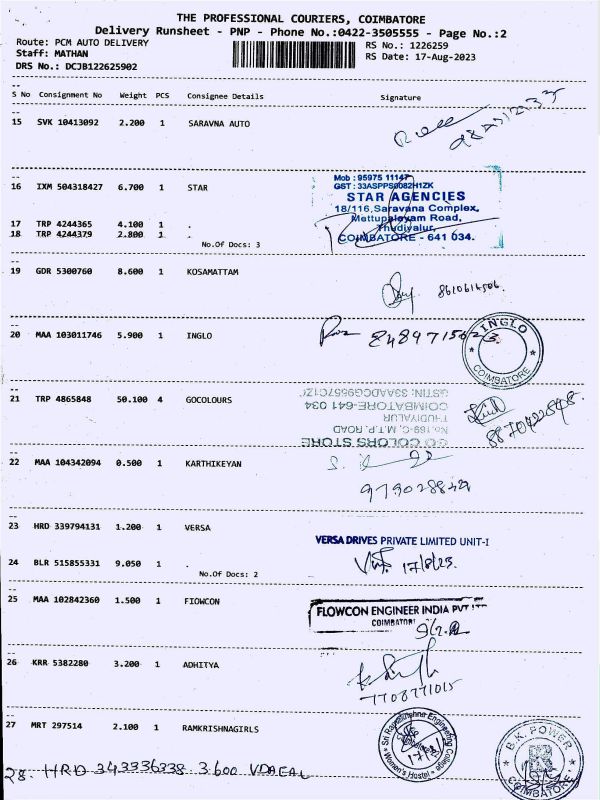 THE PROFESSIONAL COURIERS, COIMBATORE
Delivery Runsheet - PNP - Phone No.:0422-3505555 - Page No.:2
Route: PCM AUTO DELIVERY
RS No.: 1226259
Staff: MATHAN
RS Date: 17-Aug-2023
DRS No.: DCJB122625902
S No Consignment No Weight PCS Consignee Details Signature
15 SVK 10413092 2.200 1 SARAVNA AUTO
16 IXM 504318427 6.700 1 STAR
Mob : 95975 11147
GST : 33ASPPS0082H1ZK
STAR AGENCIES
18/116, Saravana Complex,
Mettuppalayam Road,
Thudiyalur,
COIMBATORE - 641 034.
17 TRP 4244365 4.100 1 .
18 TRP 4244379 2.800 1 .
No.Of Docs: 3
19 GDR 5300760 8.600 1 KOSAMATTAM
8610616506
20 MAA 103011746 5.900 1 INGLO
INGLO
COIMBATORE
21 TRP 4865848 50.100 4 GOCOLOURS
GO COLORS STORE
No.169-C, M.T.P. ROAD
THUDIYALUR
COIMBATORE-641 034
22 MAA 104342094 0.500 1 KARTHIKEYAN
23 HRD 339794131 1.200 1 VERSA
VERSA DRIVES PRIVATE LIMITED UNIT-I
17/8/23.
24 BLR 515855331 9.050 1 .
No.Of Docs: 2
25 MAA 102842360 1.500 1 FIOWCON
FLOWCON ENGINEER INDIA PVT
26 KRR 5382280 3.200 1 ADHITYA
7708771015
27 MRT 297514 2.100 1 RAMKRISHNAGIRLS
Women's Hostel
B.K. POWER
28. HRD 343336338 3.600